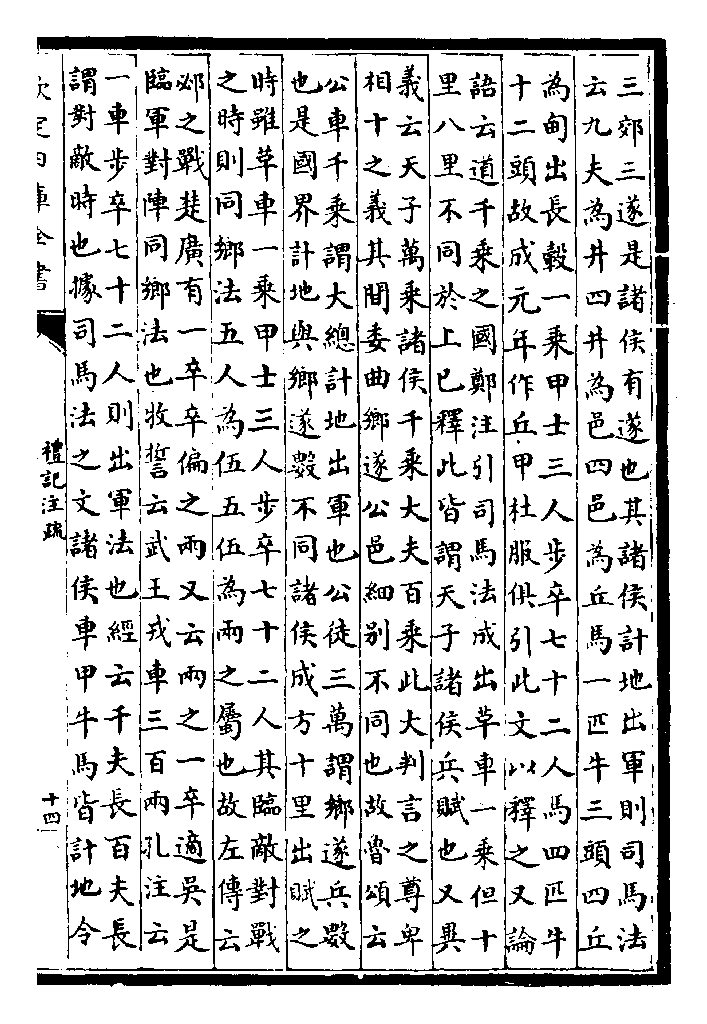 三郊三遂是諸侯有遂也其諸侯計地出軍則司馬法
云九夫為井四井為邑四邑為丘馬一匹牛三頭四丘
為甸出長轂一乘甲士三人步卒七十二人馬四匹牛
十二頭故成元年作丘甲杜服俱引此文以釋之又論
語云道千乘之國鄭注引司馬法成出草車一乘但十
里八里不同於上已釋此皆謂天子諸侯兵賦也又異
義云天子萬乘諸侯千乘大夫百乘此大判言之尊卑
相十之義其間委曲鄉遂公邑細別不同也故魯頌云
公車千乘謂大總計地出軍也公徒三萬謂鄉遂兵數
也是國界計地與鄉遂數不同諸侯成方十里出賦之
時雖草車一乘甲士三人步卒七十二人其臨敵對戰
之時則同鄉法五人為伍五伍為兩之屬也故左傳云
邲之戰楚廣有一卒卒偏之兩又云兩之一卒適吳是
臨軍對陣同鄉法也牧誓云武王戎車三百兩孔注云
一車步卒七十二人則出軍法也經云千夫長百夫長
謂對敵時也據司馬法之文諸侯車甲牛馬皆計地令
欽定四庫全書
禮記注疏
十四